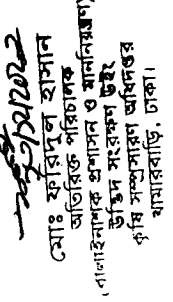 মোঃ ফরিদুল হাসান
অতিরিক্ত পরিচালক
(বালাইনাশক প্রশাসন ও মাননিয়ন্ত্রণ)
উদ্ভিদ সংরক্ষণ উইং
কৃষি সম্প্রসারণ অধিদপ্তর
খামারবাড়ি, ঢাকা।